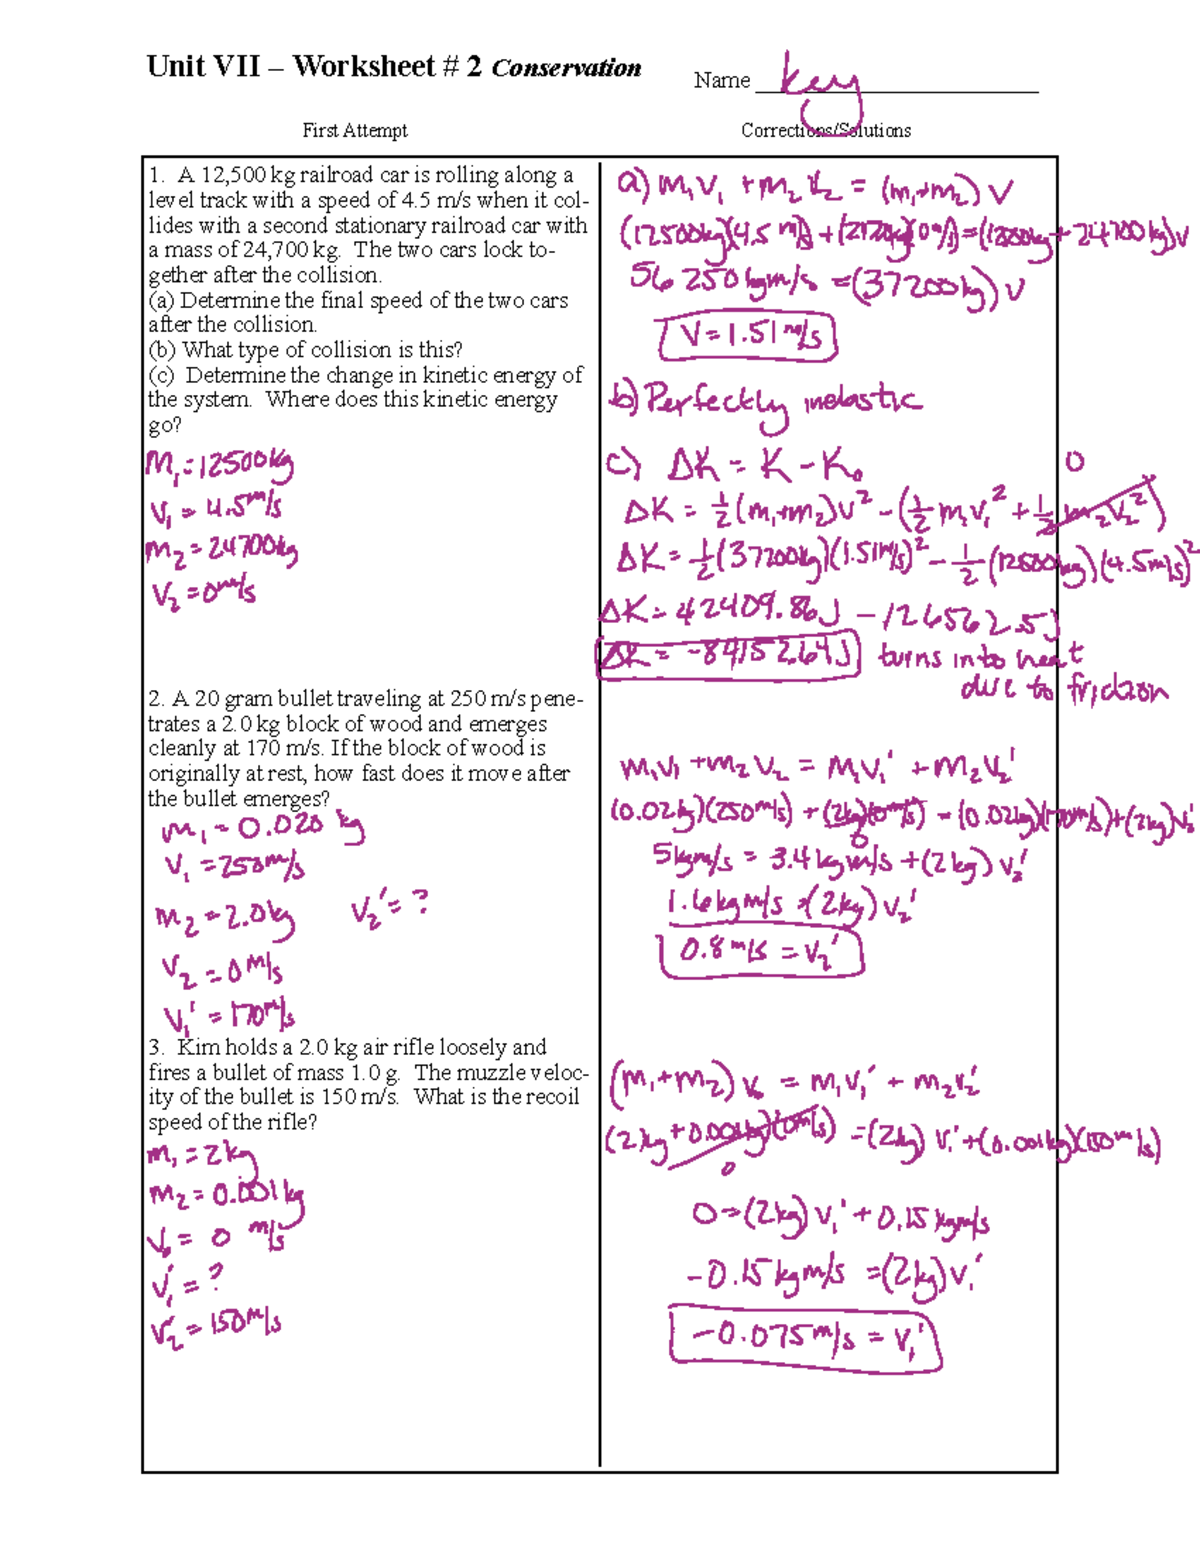 Unit VII – Worksheet # 2 Conservation
Name key
First Attempt
Corrections/Solutions
1. A 12,500 kg railroad car is rolling along a
level track with a speed of 4.5 m/s when it col-
lides with a second stationary railroad car with
a mass of 24,700 kg. The two cars lock to-
gether after the collision.
(a) Determine the final speed of the two cars
after the collision.
(b) What type of collision is this?
(c) Determine the change in kinetic energy of
the system. Where does this kinetic energy
go?
m₁=12500kg
v₁ = 4.5m/s
m₂=24700kg
v₂=0m/s
a) m₁v₁ + m₂v₂ = (m₁+m₂)v
(12500kg)(4.5 m/s) + (0 m/s) = (12500kg + 24700kg)v
56250kgm/s = (37200kg)v
v=1.51 m/s
b) Perfectly inelastic
c) ΔK = K - K₀
0
ΔK = ½(m₁+m₂)v² - (½m₁v₁² + ½m₂v₂²)
ΔK = ½(37200kg)(1.51m/s)² - ½(12500kg)(4.5m/s)²
ΔK = 42409.86J - 126562.5J
ΔK = -84152.64J turns into heat
due to friction
2. A 20 gram bullet traveling at 250 m/s pene-
trates a 2.0 kg block of wood and emerges
cleanly at 170 m/s. If the block of wood is
originally at rest, how fast does it move after
the bullet emerges?
m₁=0.020 kg
v₁=250m/s
m₂=2.0kg v₂'=?
v₂=0m/s
v₁'=170m/s
m₁v₁+m₂v₂ = m₁v₁' + m₂v₂'
(0.02kg)(250m/s) + (2kg)(0m/s) = (0.02kg)(170m/s)+(2kg)v₂'
0
5kgm/s = 3.4kgm/s + (2kg)v₂'
1.6kgm/s = (2kg)v₂'
0.8m/s = v₂'
3. Kim holds a 2.0 kg air rifle loosely and
fires a bullet of mass 1.0 g. The muzzle veloc-
ity of the bullet is 150 m/s. What is the recoil
speed of the rifle?
m₁=2kg
m₂=0.001kg
v₀= 0 m/s
v₁'=?
v₂'=150m/s
(m₁+m₂)v₀ = m₁v₁' + m₂v₂'
(2kg+0.001kg)(0m/s) = (2kg)v₁'+(0.001kg)(150m/s)
0
0=(2kg)v₁' + 0.15kgm/s
-0.15kgm/s = (2kg)v₁'
-0.075m/s = v₁'